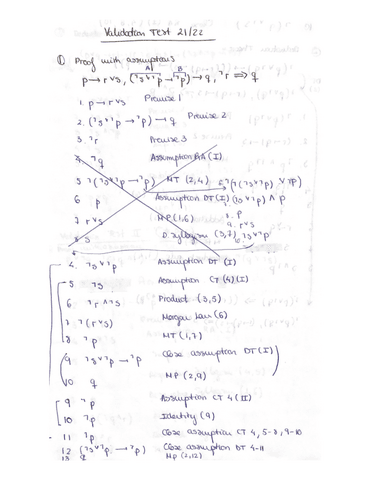 Validation Test 21/22
① Proof with assumptions
A B
p → r∨s, (¬s∨¬p → ¬p) → q, ¬r ⟹ q
1. p → r∨s Premise 1
2. (¬s∨¬p → ¬p) → q Premise 2
3. ¬r Premise 3
4. ¬q Assumption RA (I)
5 ¬(¬s∨¬p → ¬p) MT (2,4)
6 p Assumption DT(I)
7 r∨s MP(1,6)
8 s D. syllogism (3,7)
4. ¬s∨¬p Assumption DT (I)
5 ¬s Assumption CT (4)(I)
6 ¬r∧¬s Product (3,5)
7 ¬(r∨s) Morgan Law (6)
8 ¬p MT (1,7)
9 ¬s∨¬p → ¬p Close assumption DT(I)
10 q MP (2,9)
9 ¬p Assumption CT 4 (II)
10 ¬p Identity (9)
11 ¬p Close assumption CT 4, 5-8, 9-10
12 (¬s∨¬p → ¬p) Close assumption DT 4-11
13 q MP (2,12)